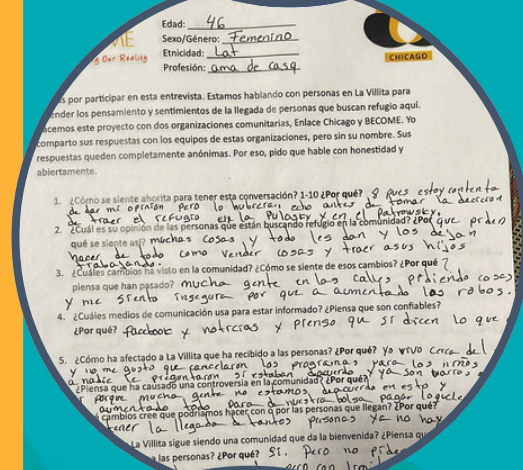 Edad: 46
Sexo/Género: Femenino
Etnicidad: Lat
Profesión: ama de casa
ME
g Our Reality
CHICAGO
s por participar en esta entrevista. Estamos hablando con personas en La Villita para
ender los pensamiento y sentimientos de la llegada de personas que buscan refugio aquí.
acemos este proyecto con dos organizaciones comunitarias, Enlace Chicago y BECOME. Yo
comparto sus respuestas con los equipos de estas organizaciones, pero sin su nombre. Sus
respuestas queden completamente anónimas. Por eso, pido que hable con honestidad y
abiertamente.
1. ¿Cómo se siente ahorita para tener esta conversación? 1-10 ¿Por qué? 8 pues estoy contenta
de dar mi opinión pero lo hubieran echo antes de tomar la decicion
de traer el refugio en la Pulasky y en el Patrowsky.
2. ¿Cuál es su opinión de las personas que están buscando refugio en la comunidad? ¿Por que piden
qué se siente así? muchas cosas y todo les dan y los dejan
hacer de todo como vender cosas y traer asus hijos
trabajando.
3. ¿Cuáles cambios ha visto en la comunidad? ¿Cómo se siente de esos cambios? ¿Por qué
piensa que han pasado? mucha gente en las calles pidiendo cosas
y me siento insegura por que a aumentado los robos.
4. ¿Cuáles medios de comunicación usa para estar informado? ¿Piensa que son confiables?
¿Por qué? facebook y noticias y pienso que si dicen lo que
5. ¿Cómo ha afectado a La Villita que ha recibido a las personas? ¿Por qué? Yo vivo cerca del
y no me gusto que cancelaron los programas para los niños
a nadie le preguntaron si estaban deacuerdo y ya son varios
¿Piensa que ha causado una controversia en la comunidad? ¿Por qué?
porque mucha gente no estamos deacuerdo en esto y
aumentado todo para de nuestra bolsa pagar
cambios cree que podríamos hacer con o por las personas que llegan? ¿Por qué?
tener la llegada de tantos personas ya no hay
La Villita sigue siendo una comunidad que da la bienvenida? ¿Piensa qu
a las personas? ¿Por qué? Si. Pero no